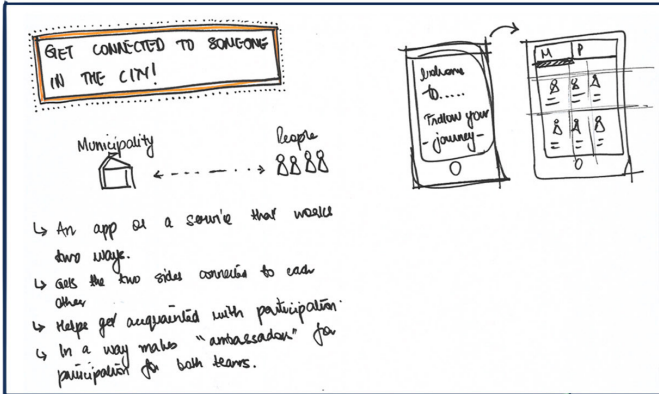 GET CONNECTED TO SOMEONE
IN THE CITY!
Municipality
People
↳ An app or a service that works
two ways.
↳ Gets the two sides connected to each
other
↳ Helps get acquainted with participation.
↳ In a way makes "ambassadors" for
participation for both teams.
Welcome
to.....
Follow your
- journey -
M P